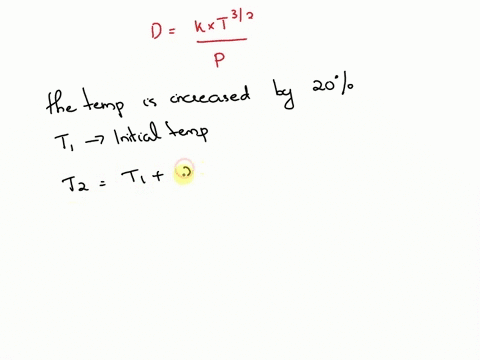 D = K × T^3/2 / P
the temp is increased by 20%
T₁ → Initial temp
T₂ = T₁ +